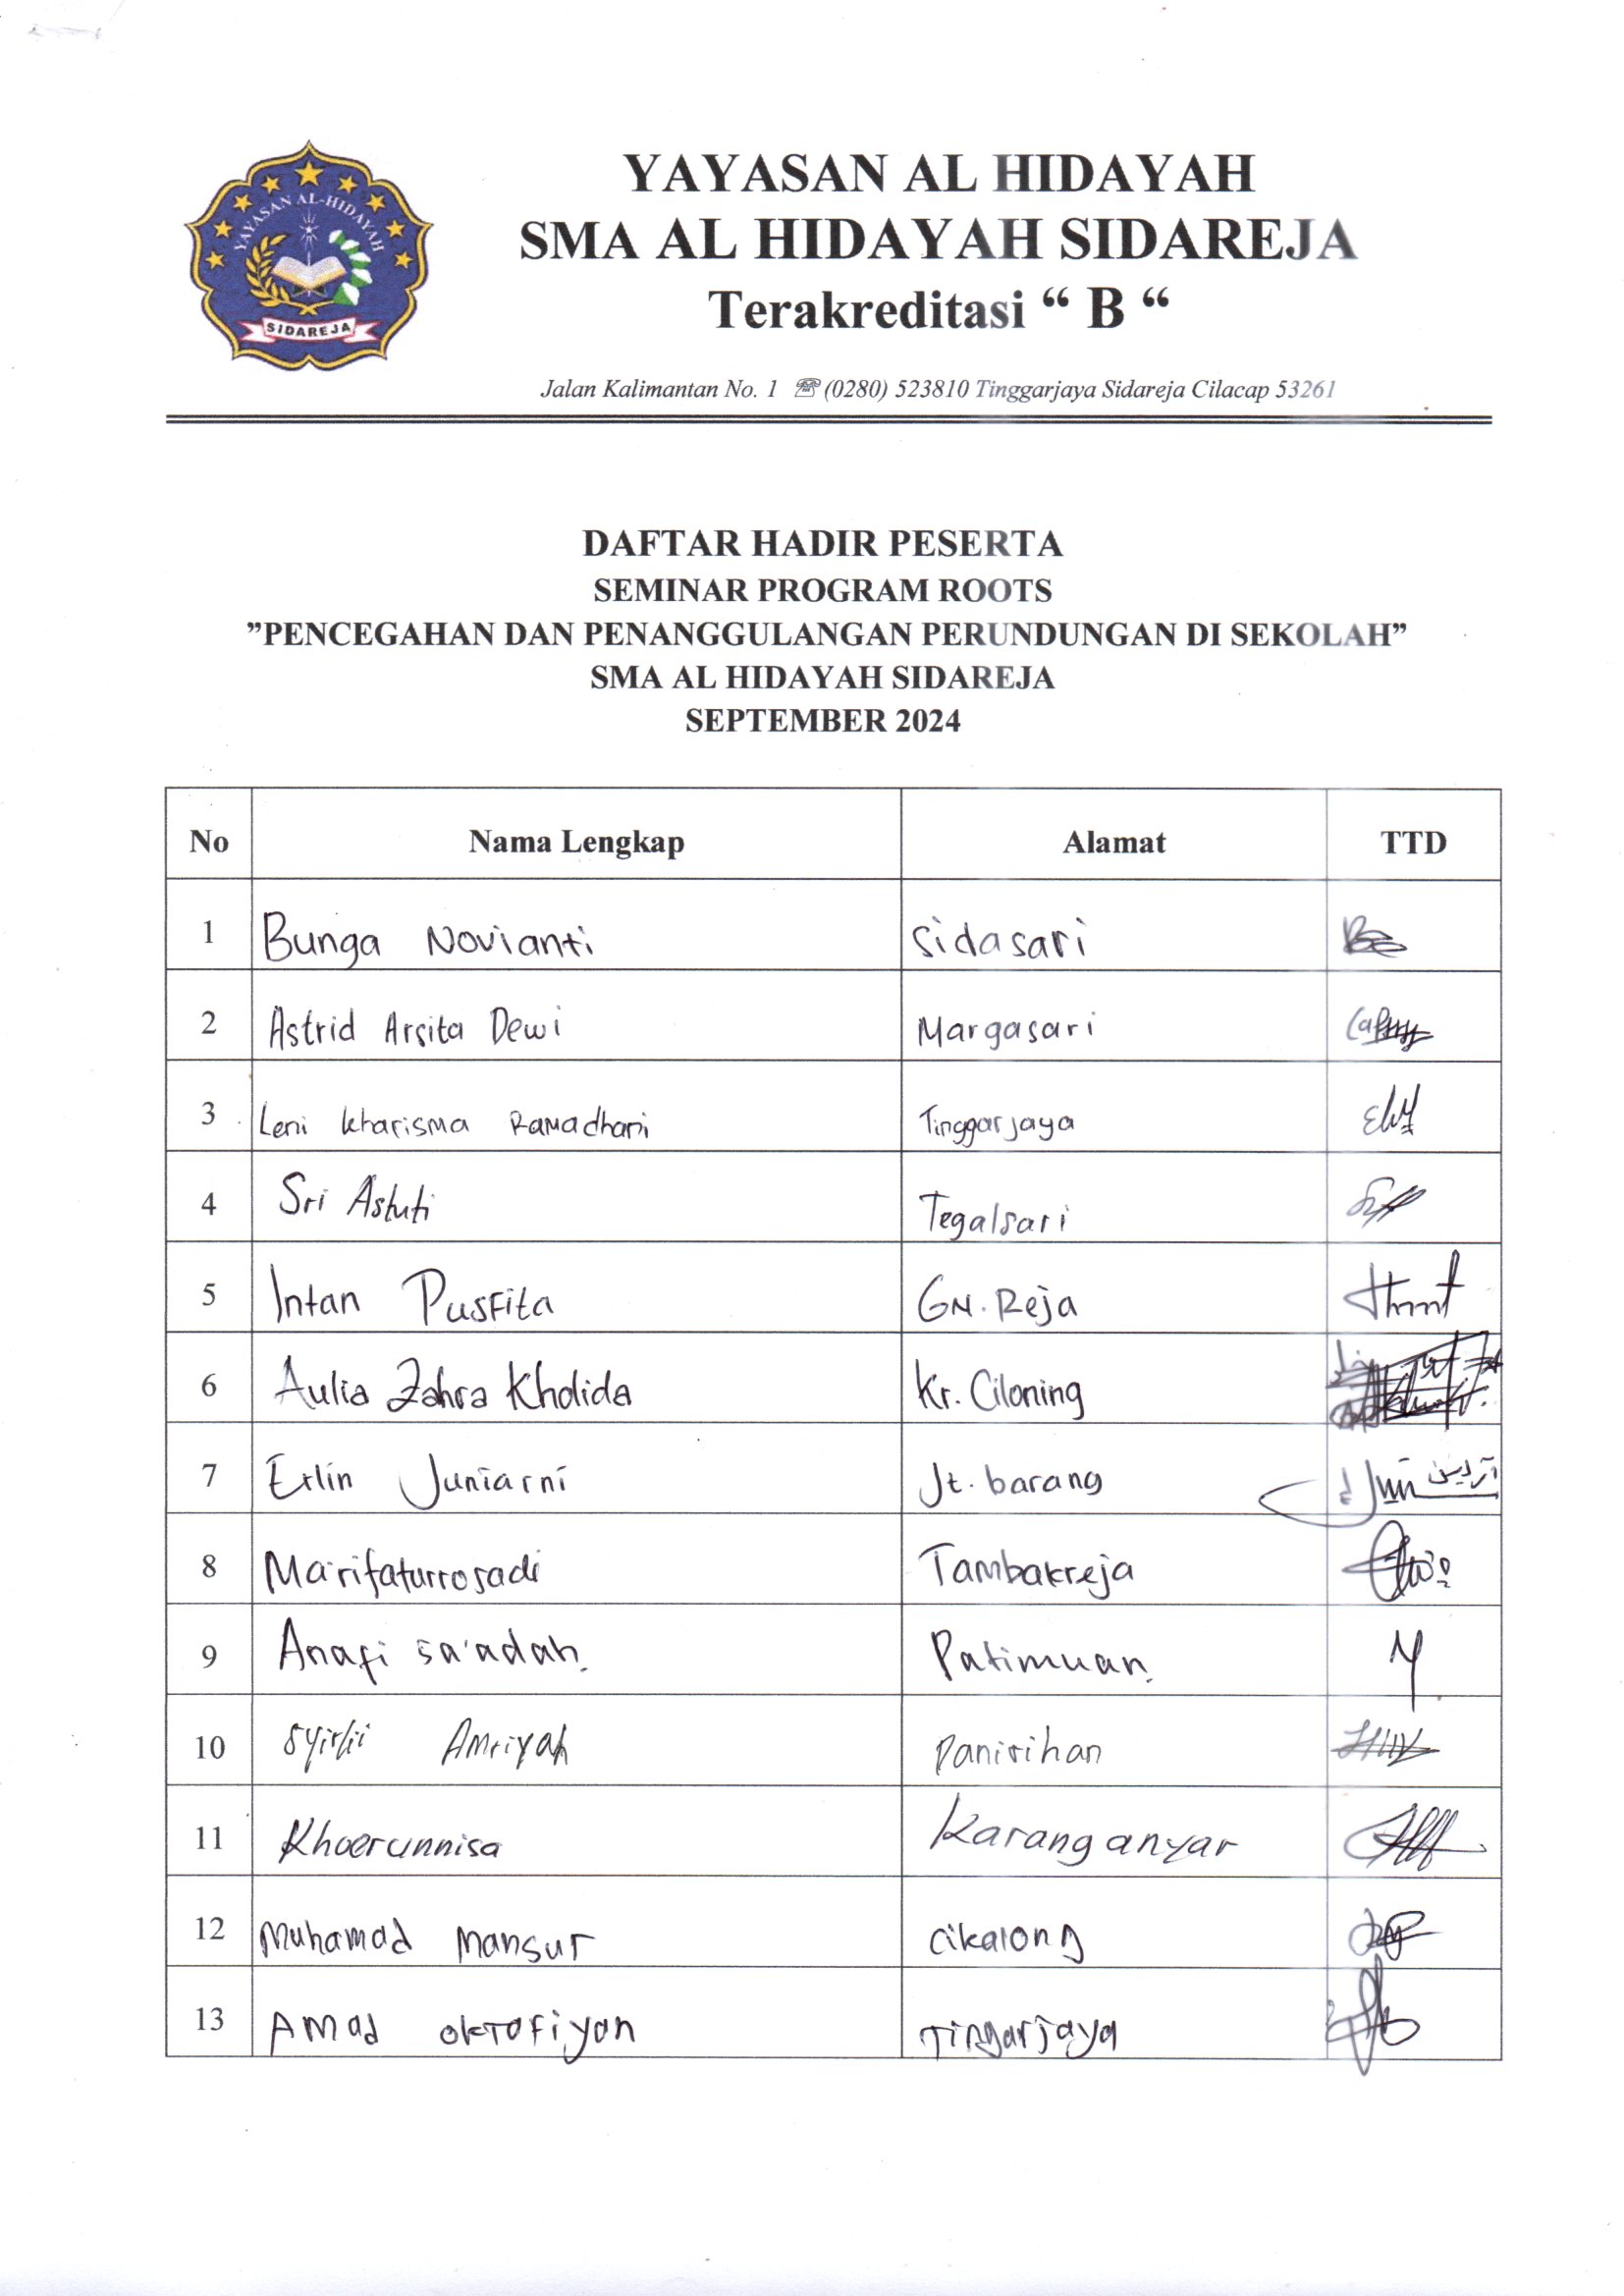 YAYASAN AL-HIDAYAH
SIDAREJA
YAYASAN AL HIDAYAH
SMA AL HIDAYAH SIDAREJA
Terakreditasi “ B “
Jalan Kalimantan No. 1 ☏ (0280) 523810 Tinggarjaya Sidareja Cilacap 53261
DAFTAR HADIR PESERTA
SEMINAR PROGRAM ROOTS
”PENCEGAHAN DAN PENANGGULANGAN PERUNDUNGAN DI SEKOLAH”
SMA AL HIDAYAH SIDAREJA
SEPTEMBER 2024
No Nama Lengkap Alamat TTD
1 Bunga Novianti Sidasari
2 Astrid Arsita Dewi Margasari
3 Leni kharisma Ramadhani Tinggarjaya
4 Sri Astuti Tegalsari
5 Intan Pusfita GN. Reja
6 Aulia Zahra Kholida Kr. Ciloning
7 Erlin Juniarni Jt. barang
8 Ma'rifaturrosadi Tambakreja
9 Anafi sa'adah. Patimuan.
10 Amriyah Panirihan
11 Khoerunnisa Karanganyar
12 Muhamad Mansur Cikalong
13 AMad oktofiyan Tingarjaya